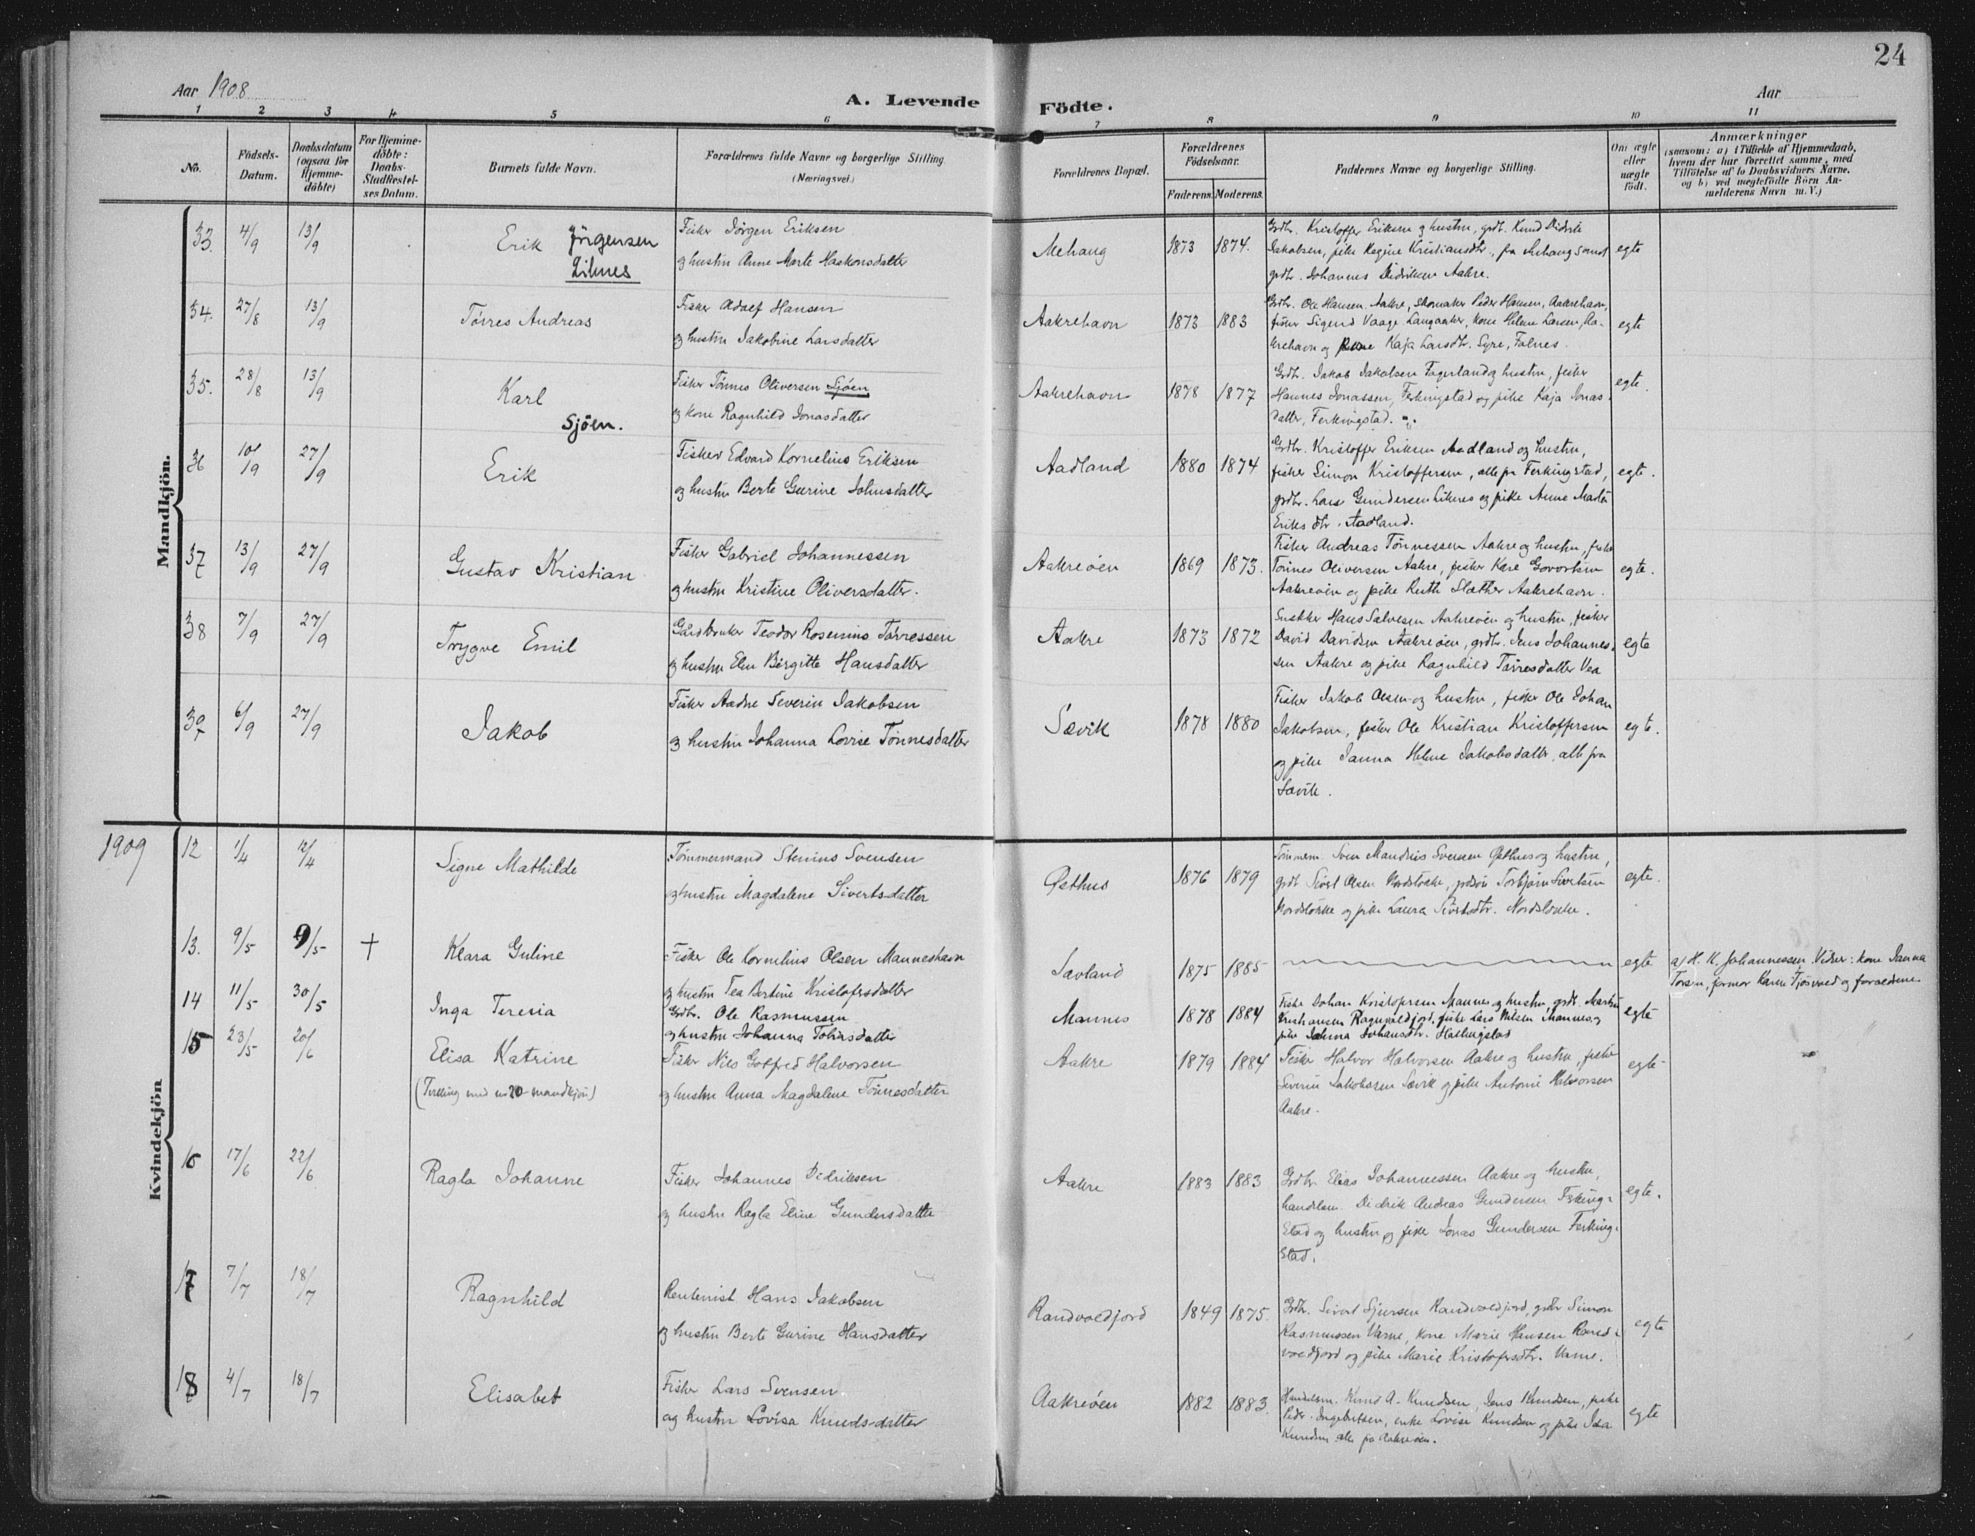 24
Aar 1908
A. Levende Födte.
Aar
1 2 3 4 5 6 7 8 9 10 11
No.
Födsels-Datum.
Daabsdatum (ogsaa for Hjemme-döbte)
For Hjemme-döbte: Daabs-Stadfæstel-ses Datum.
Barnets fulde Navn.
Forældrenes fulde Navne og borgerlige Stilling. (Næringsvei.)
Forældrenes Bopæl.
Forældrenes Födselsaar.
Faderens. Moderens.
Faddernes Navne og borgerlige Stilling.
Om ægte eller uægte födt.
Anmærkninger
(saasom: a) i Tilfælde af Hjemmedaab,
hvem der har forrettet samme, med
Tilföielse af to Daabsvidners Navne.
og b) ved uægtefödte Börn An-
melderens Navn m. V.)
Mandkjön.
33. 4/9 13/9 Erik Jörgensen Liknes
Fisker Jörgen Eriksen
og hustru Anne Marte Haakonsdatter
Mehaug 1873 1874.
Grdbr. Kristoffer Eriksen og hustru, grdb. Knud Didrik
Jakobsen, pike Regine Kristiansdtr., fra Mehaug samt
grdbr. Johannes Didriksen Aakre.
egte
34. 27/8 13/9 Törres Andreas
Fisker Adolf Hansen
og hustru Jakobine Larsdatter
Aakrehavn 1873 1883
Grdbr. Ole Hansen Aakre, Skomaker Peder Hansen, Aakrehavn,
fisker Sigurd Vaage Langaaker, kone Helene Larsen, Aa-
krehavn og pike Kaja Larsdtr. Syre, Falnes.
egte
35. 28/8 13/9 Karl Sjöen.
Fisker Tönnes Oliversen Sjöen
og kone Ragnhild Jonasdatter
Aakrehavn 1878 1877
Grdbr. Jakob Jakobsen Fagerland og hustru, fisker
Hannes Jonassen, Ferkingstad og pike Kaja Jonas-
datter, Ferkingstad.
egte.
36 10/9 27/9 Erik
Fisker Edvard Kornelius Eriksen
og hustru Berte Gurine Johnsdatter
Aadland 1880 1874
Grdbr. Kristoffer Eriksen Aadland og hustru,
fisker Simon Kristoffersen, alle fra Ferkingstad,
grdbr. Lars Gundersen Liknes og pike Anne Marta
Eriksdtr. Aadland.
egte.
37 13/9 27/9 Gustav Kristian
Fisker Gabriel Johannessen
og hustru Kristine Oliversdatter.
Aakreöen 1869 1873.
Fisker Andreas Tönnessen Aakre og hustru, fisker
Tönnes Oliversen Aakre, fisker Kare
Aakreöen og pike Ruth Aakrehavn.
egte.
38 7/9 27/9 Trygve Emil
Gaardbruker Teodor Rosenius Törressen
og hustru Elen Birgitte Hansdatter
Aakre 1873 1872
Hans Salvesen Aakreöen og hustru, fisker
David Davidsen Aakreöen, grdbr. Jens Johannes-
sen Aakre og pike Ragnhild Törresdatter Vea
egte
39 6/9 27/9 Jakob
Fisker Aadne Severin Jakobsen
og hustru Johanna Lovise Tönnesdatter
Sævik 1878 1880
Fisker Jakob Olsen og hustru, fisker Ole Johan
Jakobsen, fisker Ole Kristian Kristoffersen
og pike Janna Helene Jakobsdatter, alle fra
Sævik.
egte.
1909
Kvindekjön
12 1/4 12/4 Signe Mathilde
Tömmermand Stenius Svensen
og hustru Magdalene Sivertsdatter
Østhus 1876 1879
Tömmerm. Sven Mandrus Svensen Østhus og hustru,
grdb. Sivert Olsen Nordstokke, grdsön Torbjörn Sivertsen
Nordstokke og pike Laura Sivertsdtr. Nordstokke.
egte.
13. 9/5 9/5 + Klara Guline
Fisker Ole Kornelius Olsen Manneshavn
og hustru Tea Bertine Kristofersdatter
Sævland 1875 1885
egte
a) H. K. Johannessen Vidner: kone Janna
Torsen, farmor Karen Tjösvold og forældrene
14 11/5 30/5 Inga Teresia
Grdbr. Ole Rasmussen
og hustru Johanna Tobiasdatter
Mannes 1878 1884
Fisker Johan Kristofersen Mannes og hustru, grdb. Martin
Kristiansen Ragnvaldjord, fisker Lars Nilsen Mannes og
pike Janna Johansdtr. Hallingstad
egte
15 23/5 20/6 Elisa Katrine
(Tvilling med no 20 mandkjön)
Fisker Nils Gotfred Halvorsen
og hustru Anna Magdalene Tönnesdatter
Aakre 1879 1884
Fisker Halvor Halvorsen Aakre og hustru, fisker
Severin Jakobssen Sævik og pike Antonie Halvorsen
Aakre.
egte
16 17/6 22/6 Ragla Johanne
Fisker Johannes Didriksen
og hustru Ragla Eline Gundersdatter
Aakre 1883 1883
Grdbr. Elias Johannessen Aakre og hustru,
handelsm. Didrik Andreas Gundersen Ferking-
stad og hustru og pike Jonas Gundersen Ferking-
stad.
egte.
17 7/7 18/7 Ragnhild
Rentenist Hans Jakobsen
og hustru Berte Gurine Hansdatter
Randvoldjord 1849 1875.
Grdbr. Sivert Sjursen Randvoldjord, grdbr Simon
Rasmussen Varne, kone Marie Hansen Rand-
voldjord og pike Marie Kristofersdtr. Varne.
egte
18 4/7 18/7 Elisabet
Fisker Lars Svensen
og hustru Lovisa Knudsdatter
Aakreöen 1882 1883.
Handelsm. Knud A. Knudsen, Jens Knudsen, fisker
Peder Ingebretsen, enke Lovise Knudsen og pike Ida
Knudsen alle fra Aakreöen.
egte